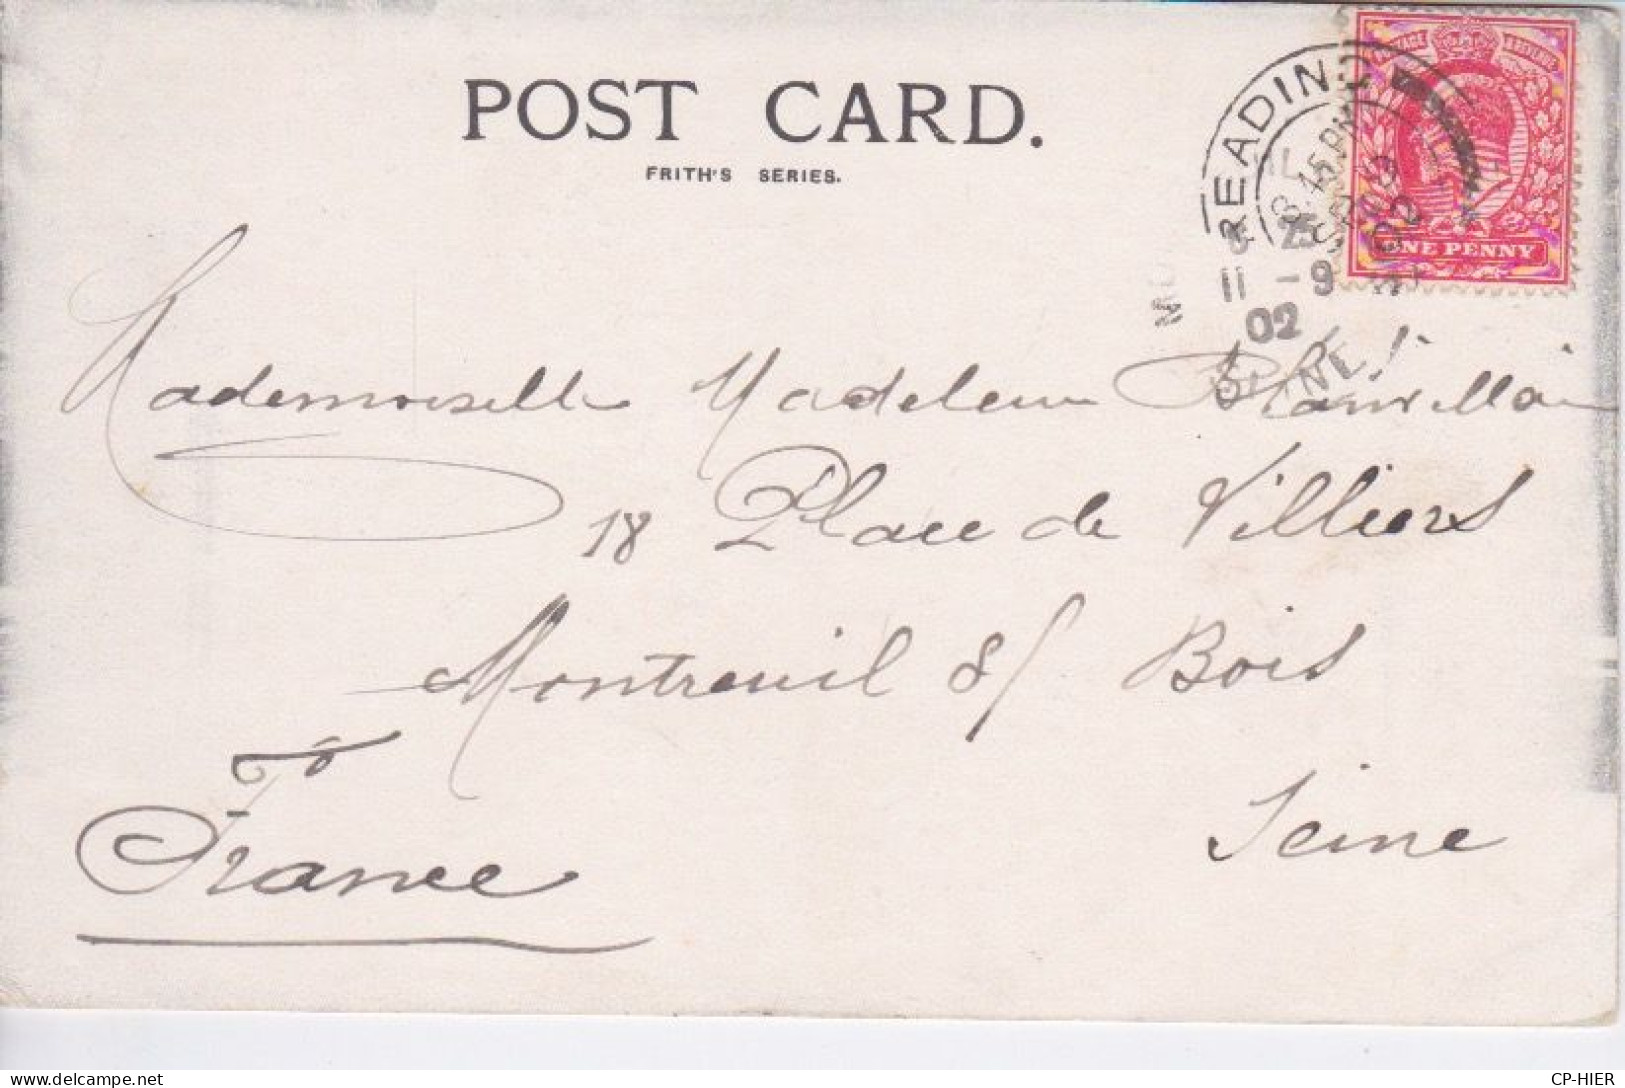 POST CARD.
FRITH'S SERIES.
POSTAGE REVENUE
ONE PENNY
READING
8.15 PM
02
11 -9
02
SEINE
Mademoiselle Madeleine
18 Place de Villiers
Montreuil s/ Bois
Seine
France
CP-HIER